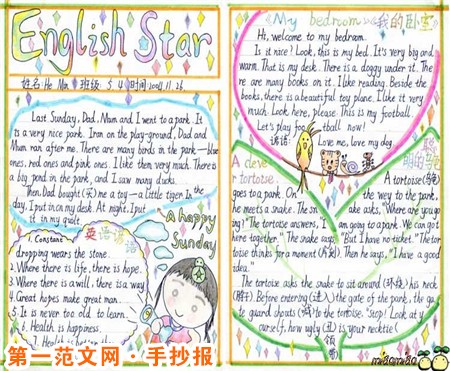 English Star
姓名 He Min 班级 5.4 时间 2004.11.26
Last Sunday, Dad, Mum and I went to a park. It
is a very nice park. I ran on the play-ground, Dad and
Mum ran after me. There are many birds in the park — blue
ones, red ones and pink ones. I like them very much. There is
a big pond in the park, and I saw many ducks.
Then Dad bought (买) me a toy — a little tiger. In the
day, I put it in my desk. At night, I put
it in my quilt.
A happy
Sunday
英语谚语
1. Constant
dropping wears the stone.
2. Where there is life, there is hope.
3. Where there is a will, there is a way
4. Great hopes make great man.
5. It is never too old to learn.
6. Health is happiness.
My bedroom 我的卧室
Hi, welcome to my bedroom.
Is it nice? Look, this is my bed. It's very big and
warm. That is my desk. There is a doggy under it. The
re are many books on it. I like reading. Beside the
books, there is a beautiful toy plane. I like it very
much. Look here, please! This is my football.
Let's play football now!
谚语: Love me, love my dog.
A clever tortoise
聪明的乌龟
A tortoise (乌龟)
goes to a park. On the way to the park,
he meets a snake. The snake asks, "Where are you go
ing?" The tortoise answers, "I am going to a park. We can go t
here together." The snake says, "But I have no ticket." The tor
toise thinks for a moment (片刻). Then he says, "I have a good
idea."
The tortoise asks the snake to sit around (环绕) his neck
(脖子). Before entering (进入) the gate of the park, the ga
te guard shouts (喊) to the tortoise. "Stop! Look at y
ourself, how ugly (丑) is your necktie (
领带)
miaomiao
第一范文网·手抄报